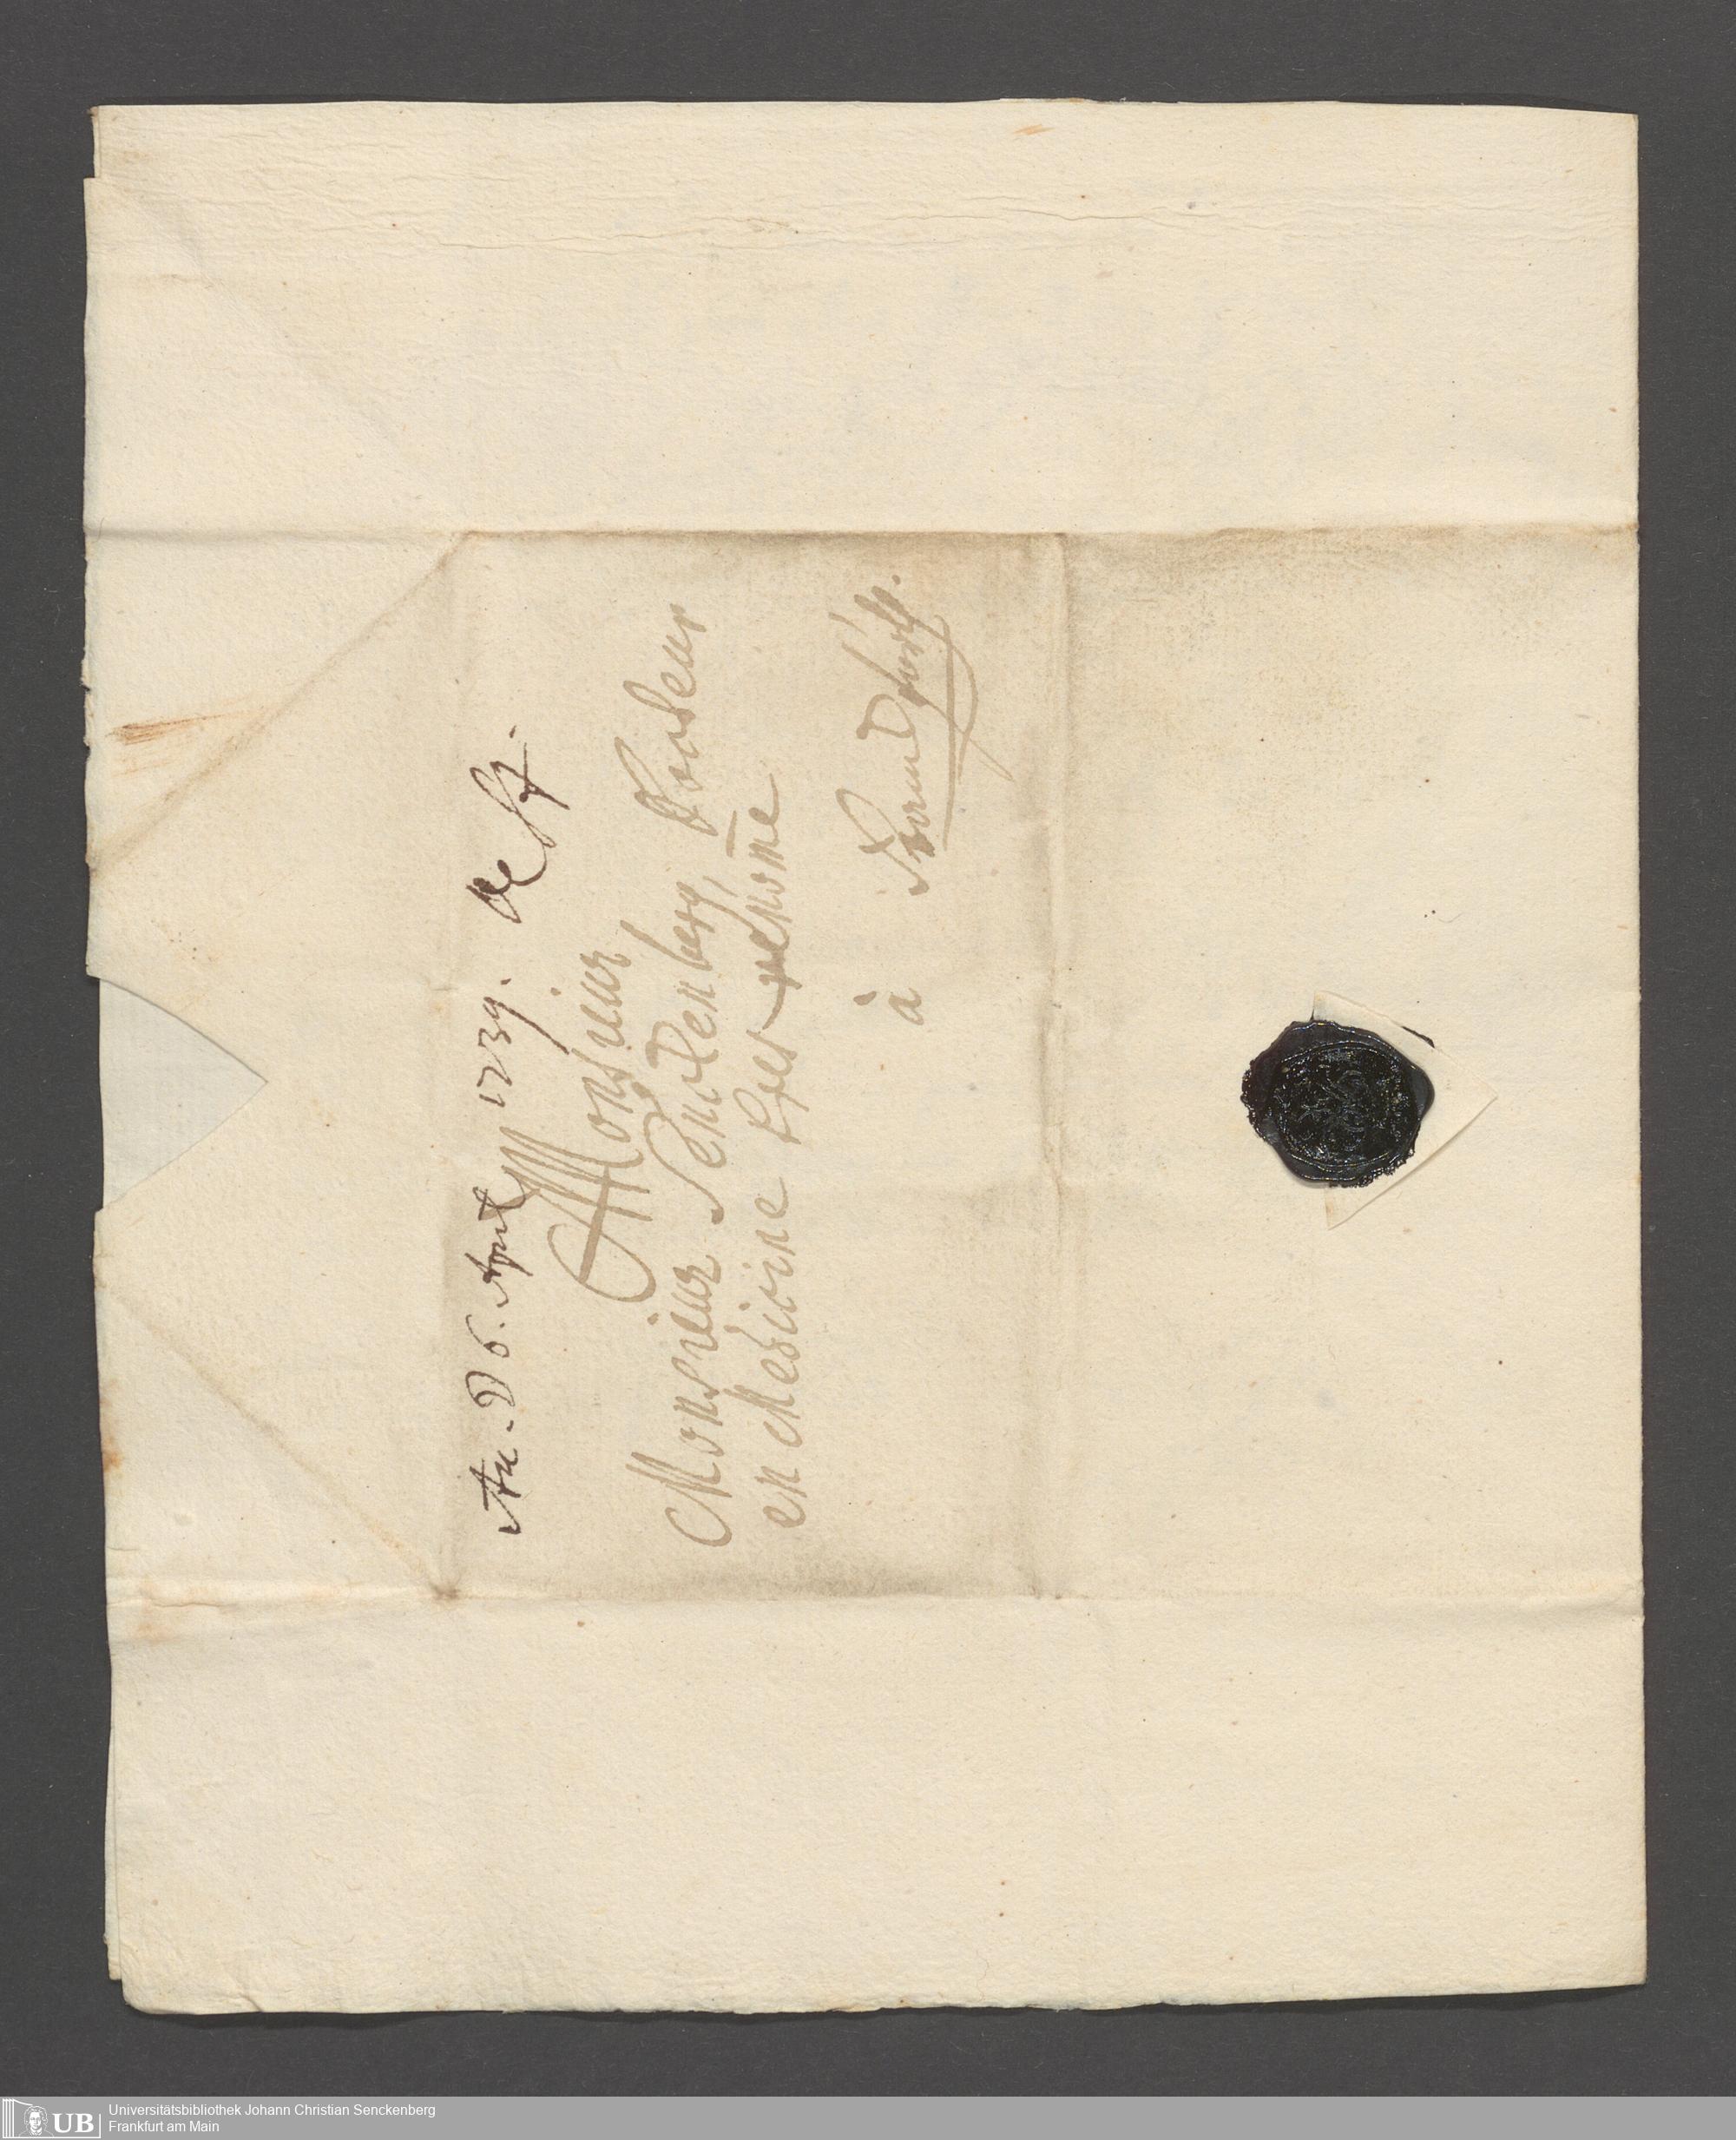 An. D 6. April 1739.
Monsieur
Monsieur Senckenberg, Docteur
en Medicine tres renomé
à Franckfort.
UB
Universitätsbibliothek Johann Christian Senckenberg
Frankfurt am Main